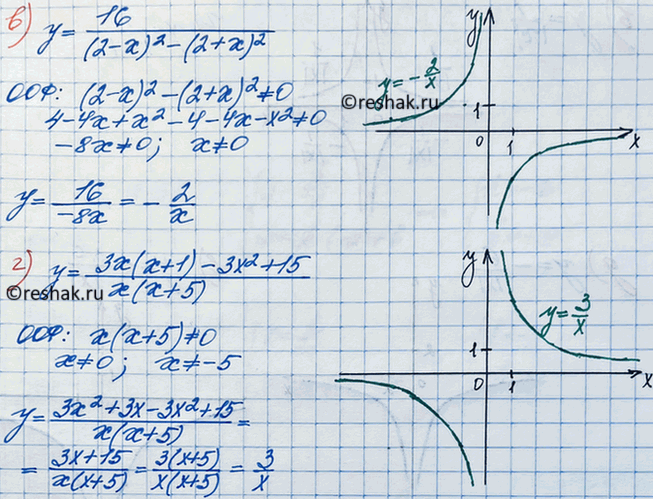 в) y = 16 / ((2-x)² - (2+x)²)
ООФ: (2-x)² - (2+x)² ≠ 0
4-4x+x²-4-4x-x² ≠ 0
-8x ≠ 0; x ≠ 0
y = 16 / (-8x) = - 2/x
y
y = - 2/x
©reshak.ru
1
0 1 x
г) y = (3x(x+1) - 3x² + 15) / (x(x+5))
©reshak.ru
ООФ: x(x+5) ≠ 0
x ≠ 0; x ≠ -5
y = (3x² + 3x - 3x² + 15) / (x(x+5)) =
= (3x+15) / (x(x+5)) = 3(x+5) / (x(x+5)) = 3/x
y
y = 3/x
1
0 1 x